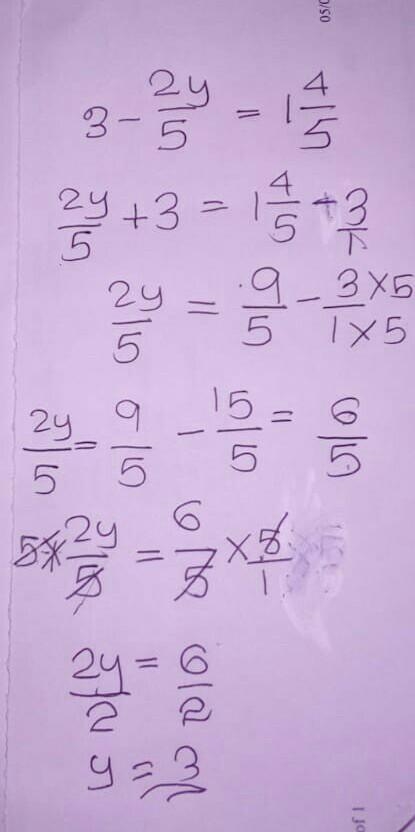 05/0
3 - 2y/5 = 1 4/5
2y/5 + 3 = 1 4/5 - 3/1
2y/5 = 9/5 - 3×5/1×5
2y/5 = 9/5 - 15/5 = 6/5
5× 2y/5 = 6/5 × 5/1
2y/2 = 6/2
y = 3
of 1